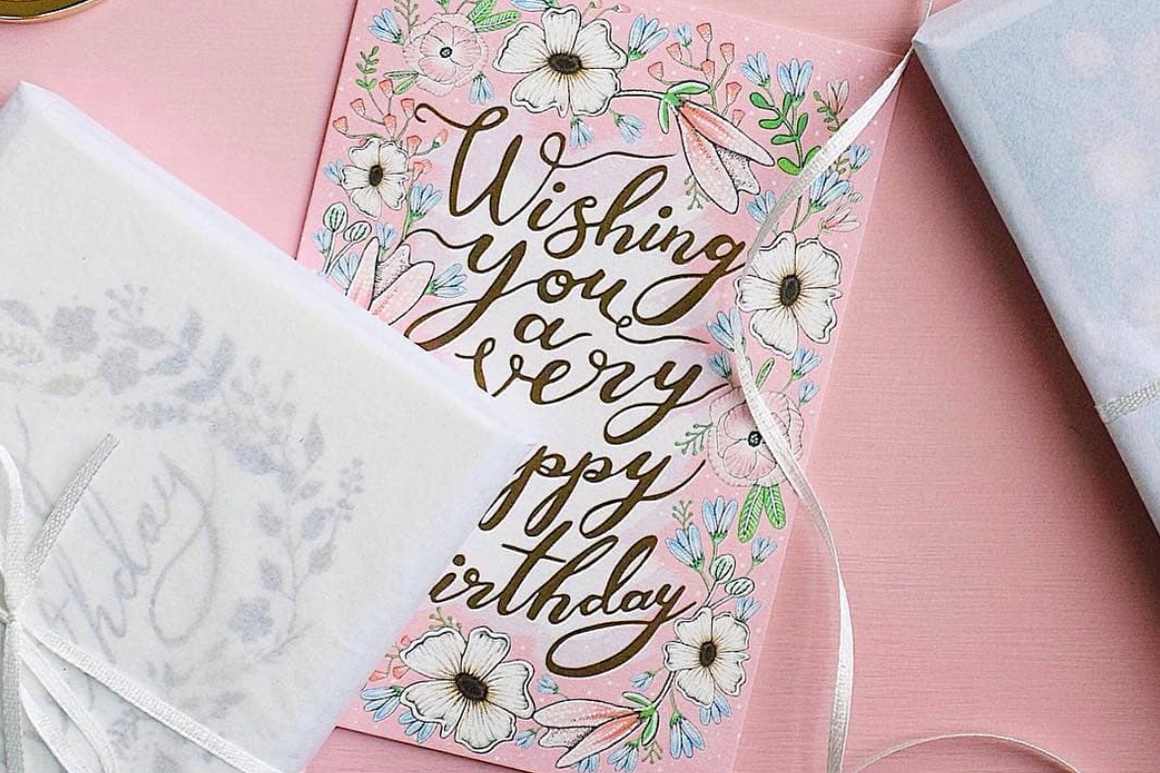 Wishing
you
a
very
ppy
irthday
thday